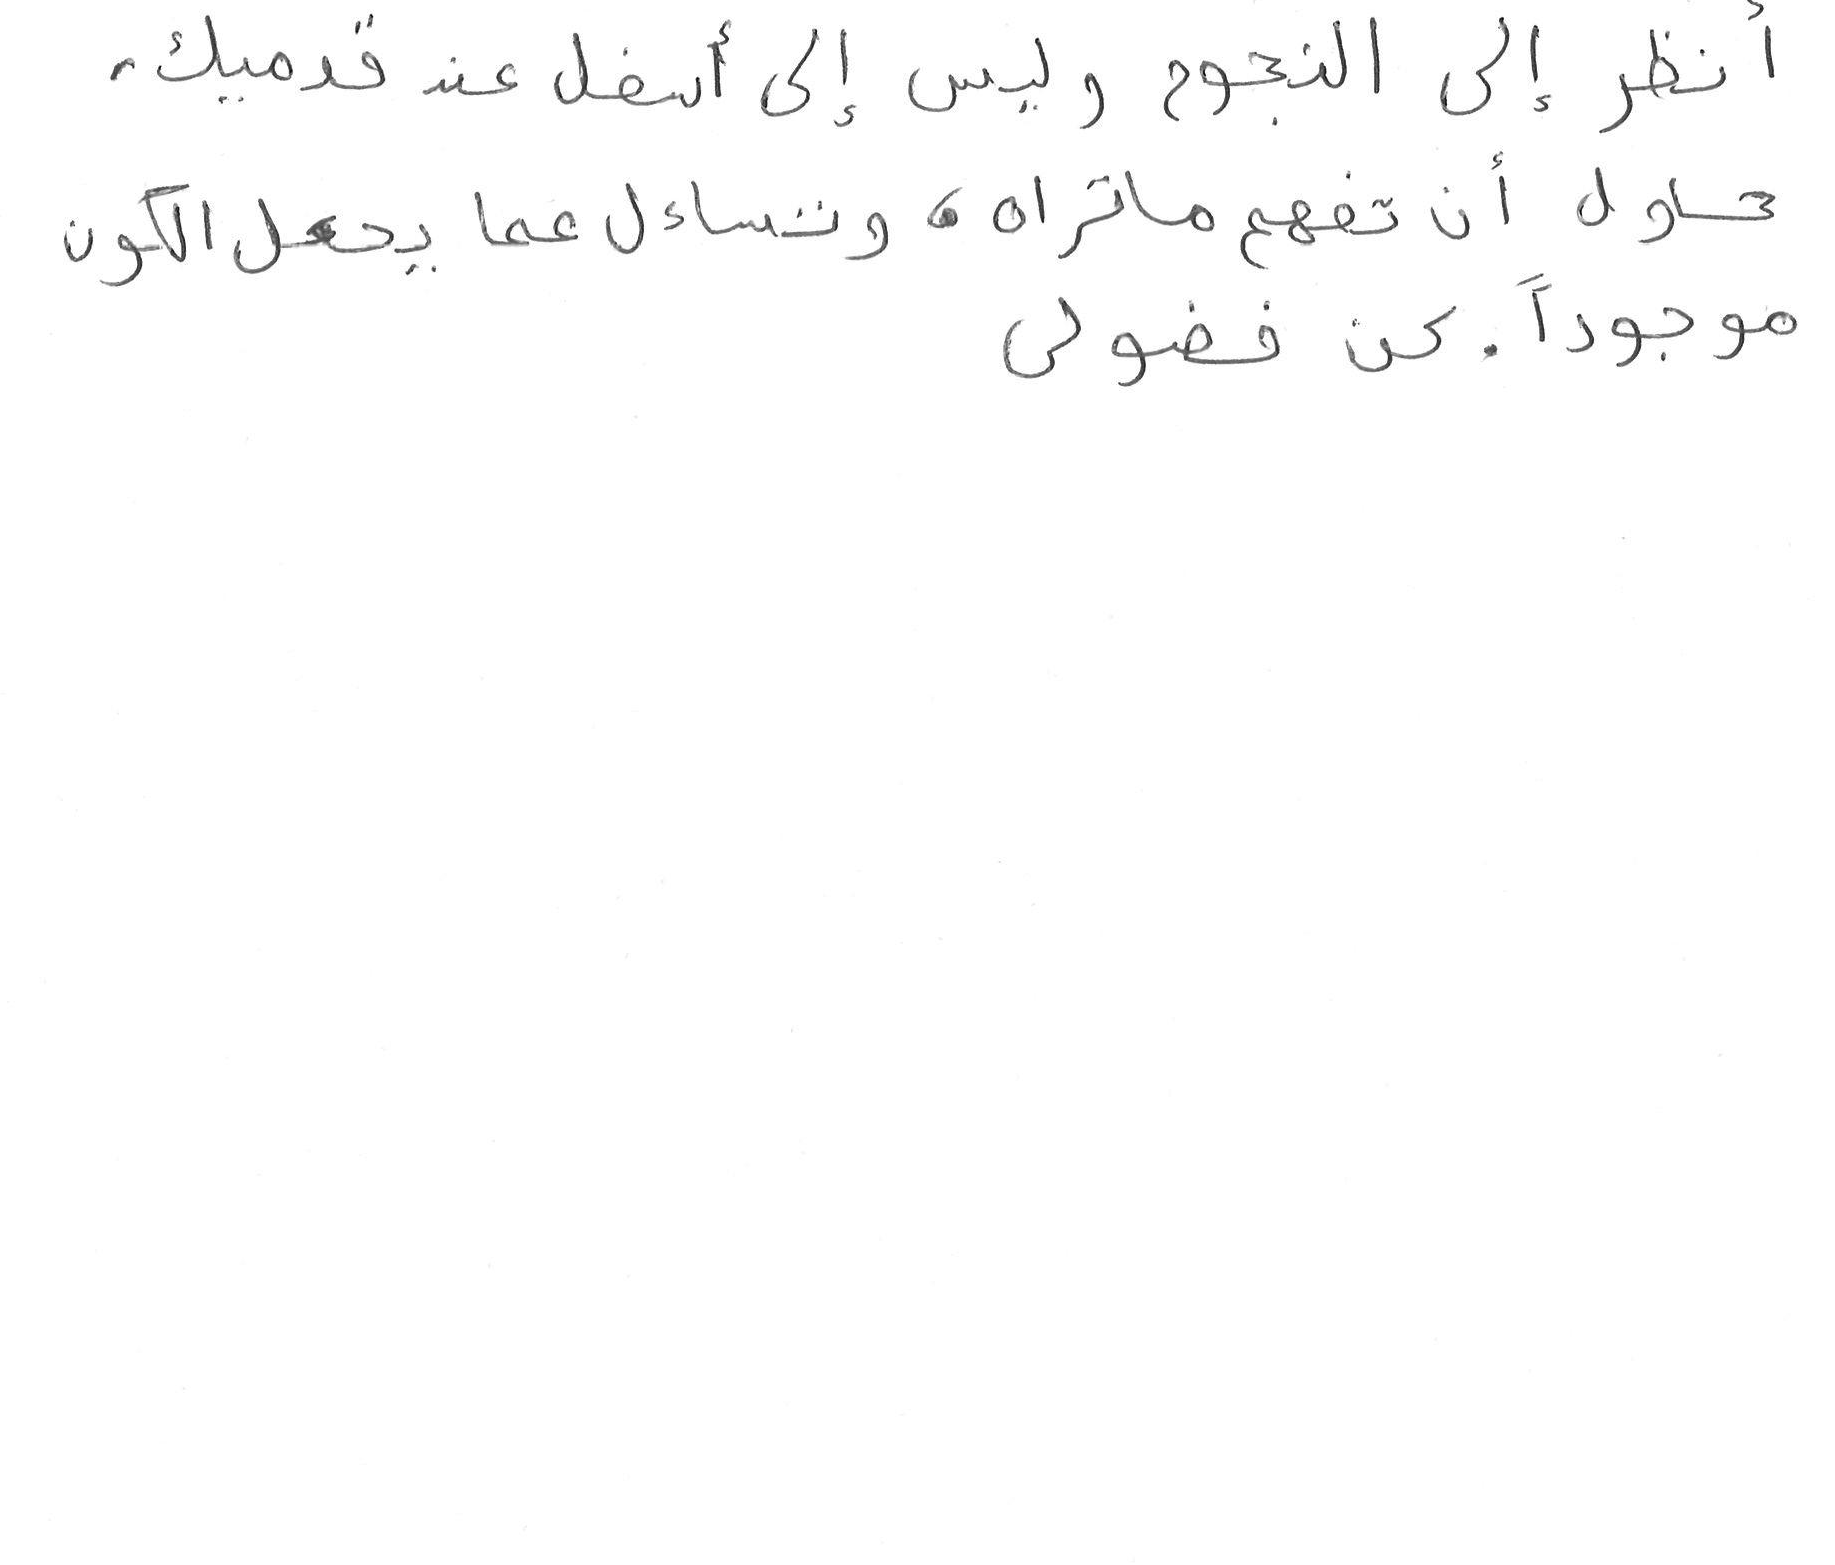 أنظر إلى النجوم وليس إلى أسفل عند قدميك،
حاول أن تفهم ماتراه، وتتساءل عما يجعل الكون
موجوداً. كن فضولى